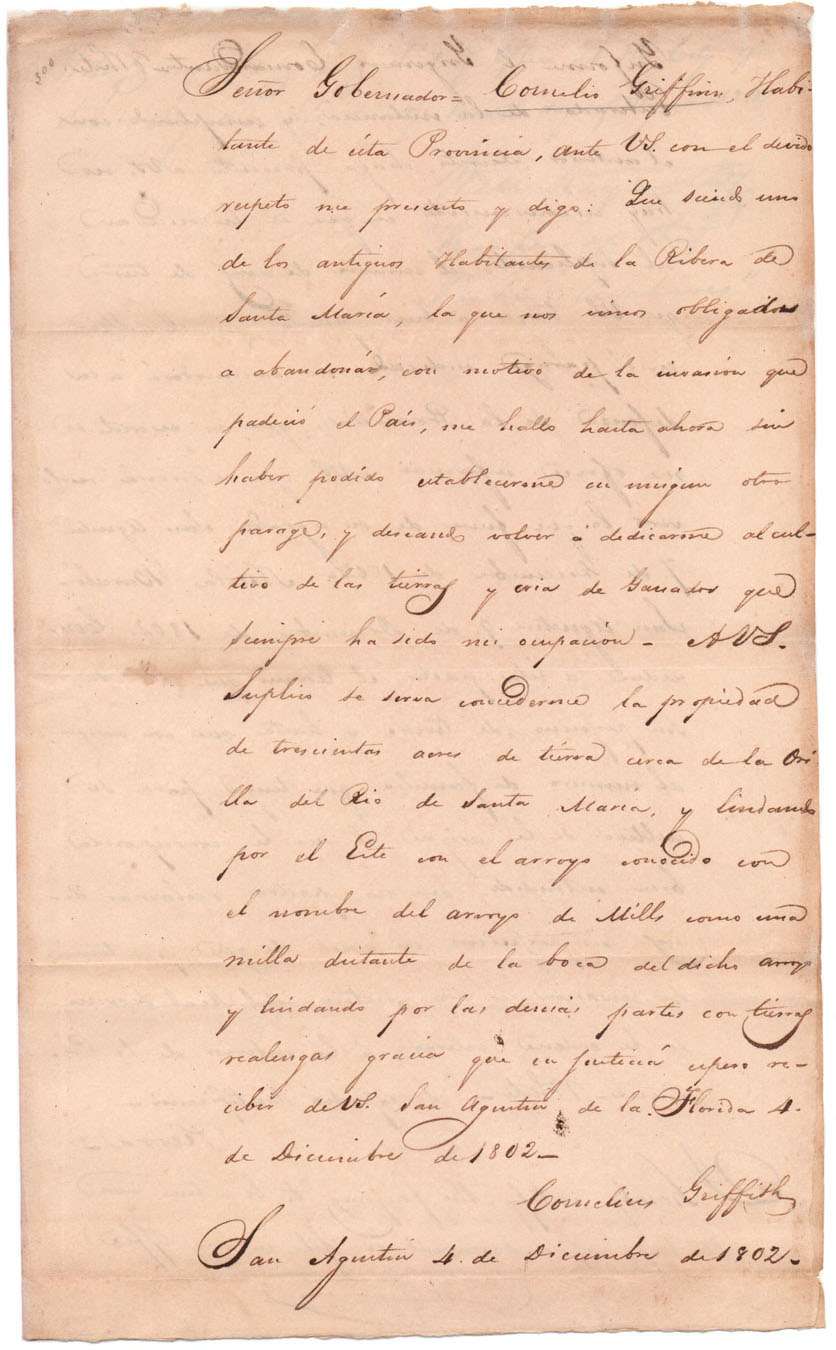 300
Señor Gobernador = Cornelio Griffin, Habi-
tante de ésta Provincia, ante VS. con el devido
respeto me presento y digo: Que siendo uno
de los antiguos Habitantes de la Ribera de
Santa María, la que nos vimos obligados
a abandonár, con motivo de la invasión que
padeció el País, me hallo hasta ahora sin
haber podído establecerme en ningun otro
parage, y deseando volver á dedicarme al cul-
tivo de las tierras y cria de Ganados que
siempre ha sido mi ocupación - A VS.
Suplico se sirva concederme la propiedad
de trescientas acres de tiérra cerca de la Ori
lla del Rio de Santa Maria, y lindando
por el Este con el arroyo conocido con
el nombre del arroyo de Mills como una
milla distante de la boca del dicho arroyo
y lindando por las demás partes con tierras
realengas gracia que en justicia espero re-
cibir de VS. San Agustin de la Florida 4.
de Diciembre de 1802 -
Cornelius Griffith
San Agustin 4. de Diciembre de 1802 -